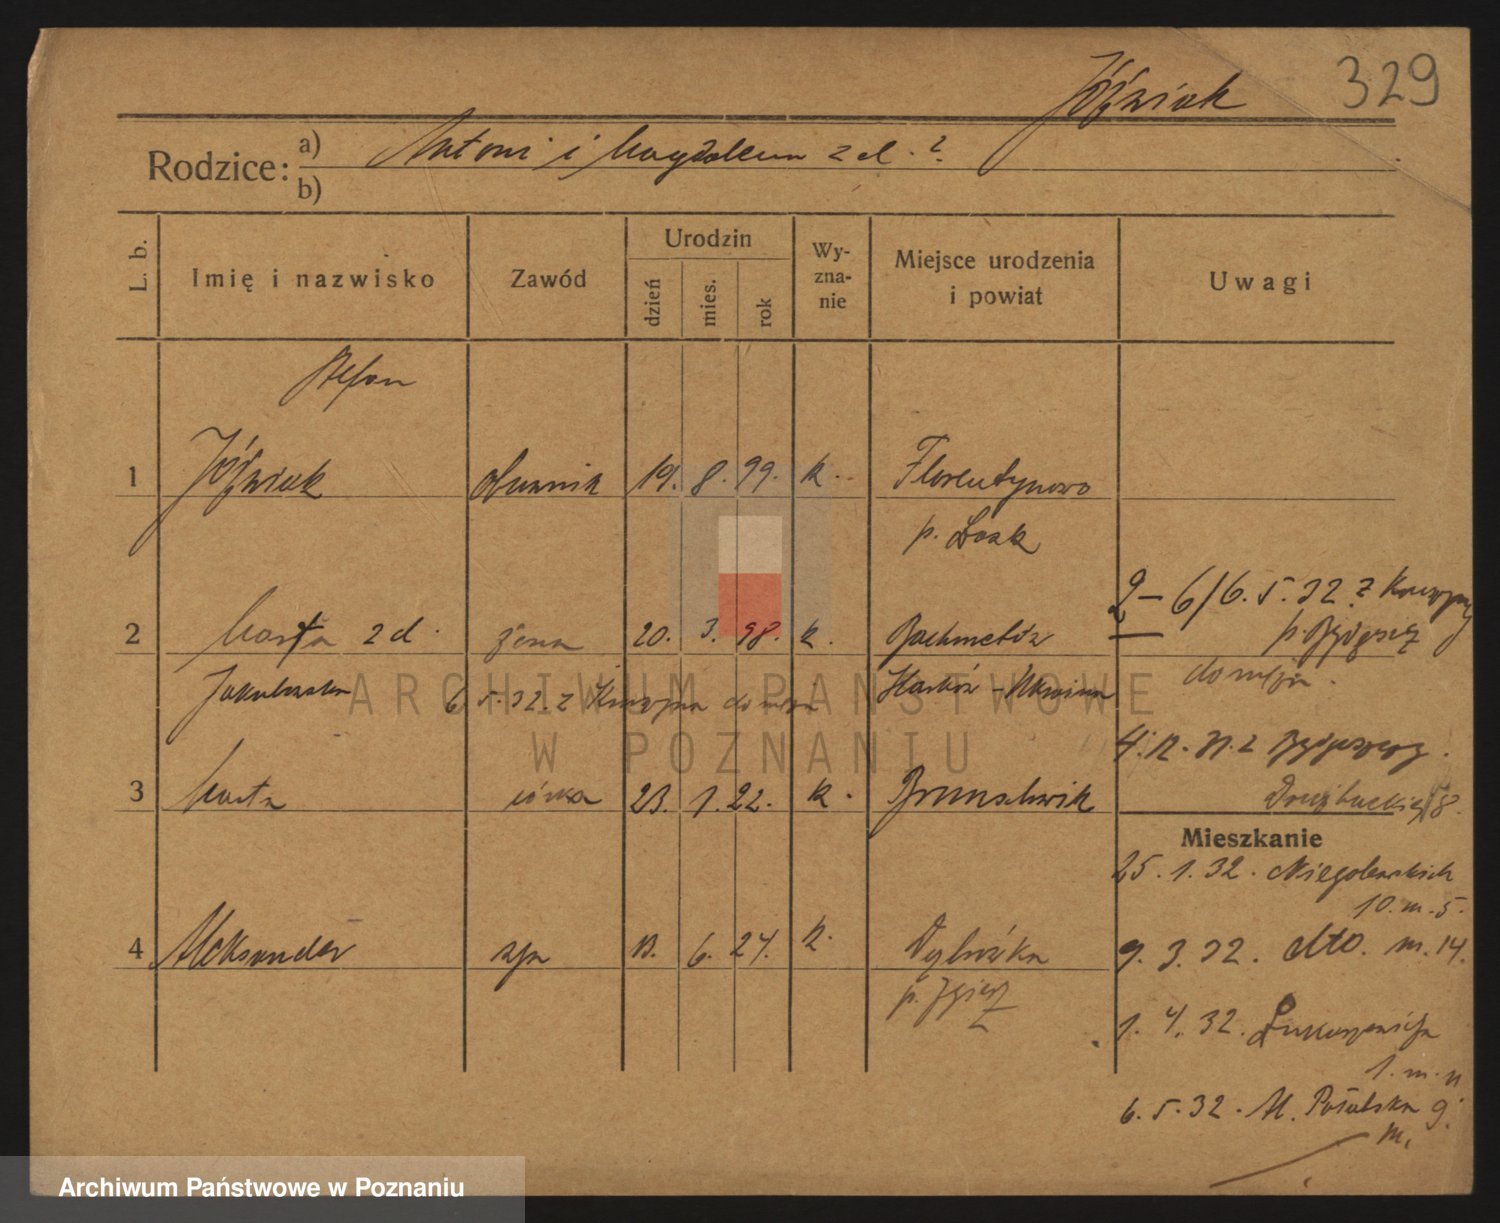 Jóźwiak 329
Rodzice: a) Antoni i Magdalena z d. ?
b)
L. b. Imię i nazwisko Zawód Urodzin dzień mies. rok Wy-zna-nie Miejsce urodzenia i powiat Uwagi
Stefan
1 Jóźwiak 19. 8. 99. k. Florentynowo
p. Łask
2 - 6/6.5.32 z
2 Marta z d. żona 20. 3. 98. k.
p. Bydgoszcz
do męża.
6.5.32. z do męża Charków - Ukraina
4.12.31. z Bydgoszczy.
3 Marta córka 23. 1. 22. k. Brunschwik
8.
Mieszkanie
25.1.32. Niegolewskich
10. m. 5.
4 Aleksander syn 13. 6. 24. k.
9.3.32. dto. m. 14.
p. Zgierz
1.4.32. Łukaszewicza
1. m. 11
6.5.32. M. 9.
m.
ARCHIWUM PAŃSTWOWE
W POZNANIU
Archiwum Państwowe w Poznaniu